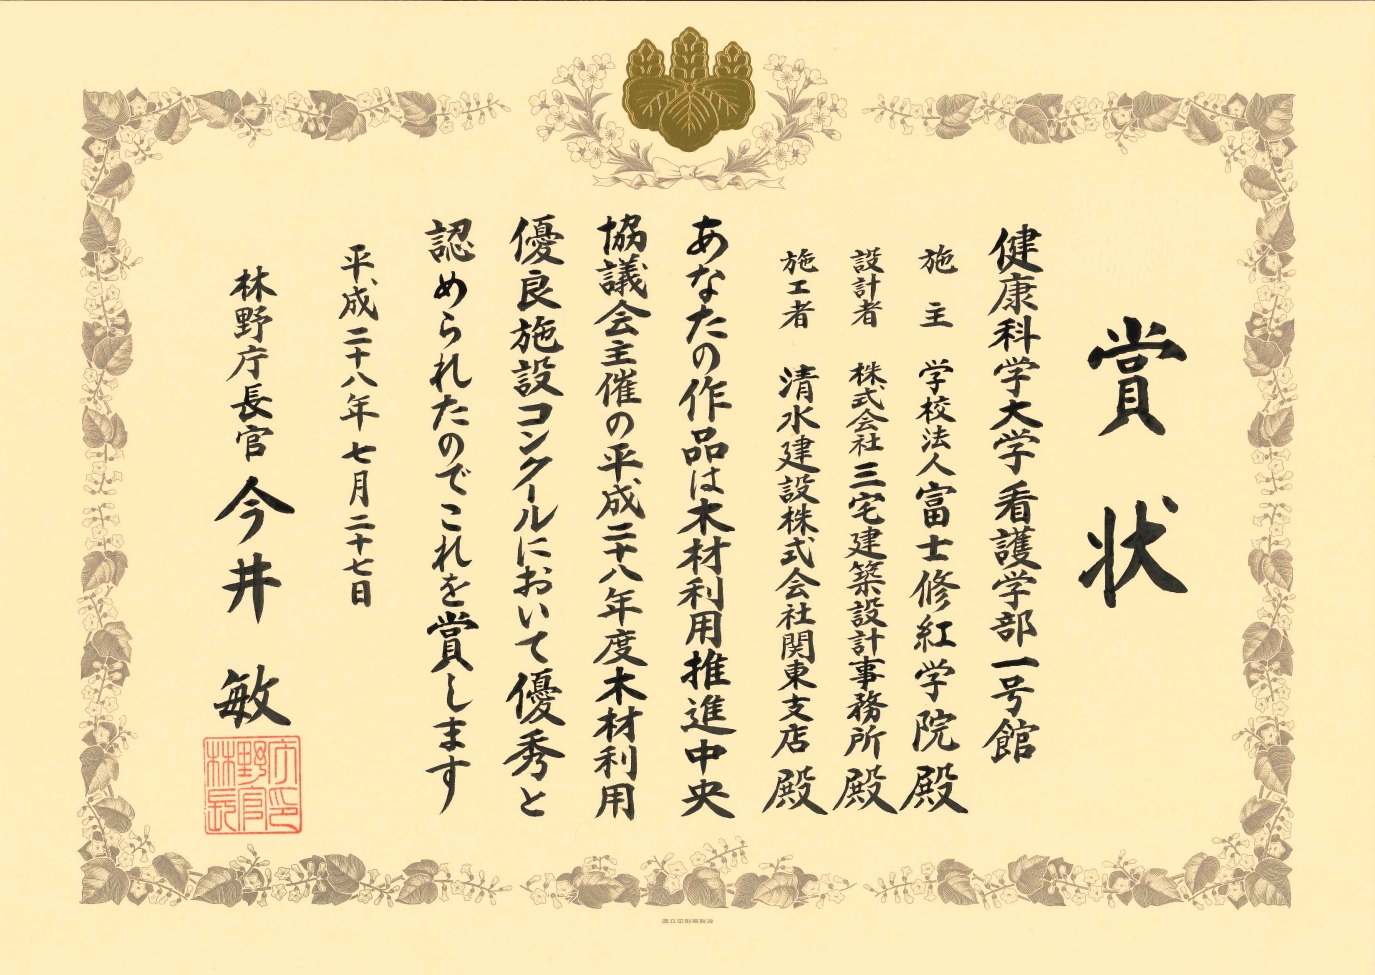 賞状
健康科学大学看護学部一号館
施主 学校法人富士修紅学院殿
設計者 株式会社三宅建築設計事務所殿
施工者 清水建設株式会社関東支店殿
あなたの作品は木材利用推進中央
協議会主催の平成二十八年度木材利用
優良施設コンクールにおいて優秀と
認められたのでこれを賞します
平成二十八年七月二十七日
林野庁長官 今井敏